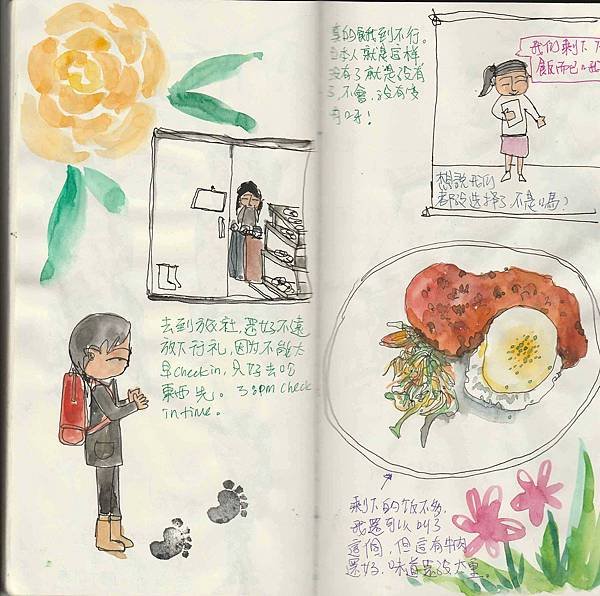 去到旅社,還好不遠
放下行礼,因为不能太
早checkin,只好去吃
東西先。 pm check
in time。
真的餓到不行。
日本人就是這样
没有了就是没有
了,不會,没有
呀!
我们剩下
飯而已
想說我们
都没选择了不是嗎?
剩下的饭不多,
我還可以叫了
這個,但這有牛肉
還好,味道没太重。